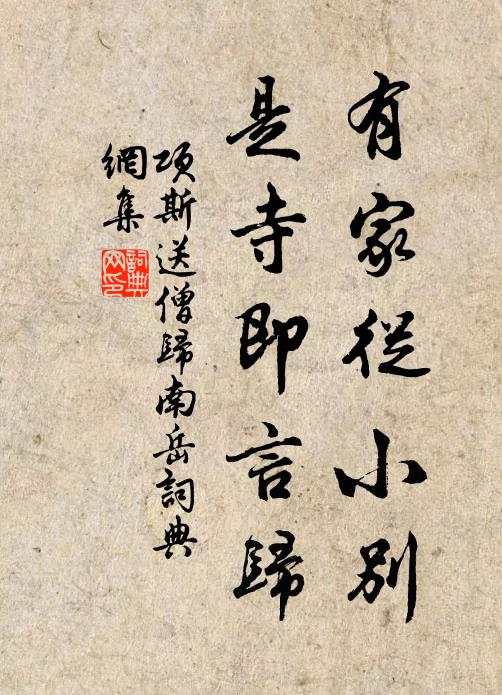 有家從小別
是寺即言歸
項斯送僧歸南岳詞典
網集
詞典
网印